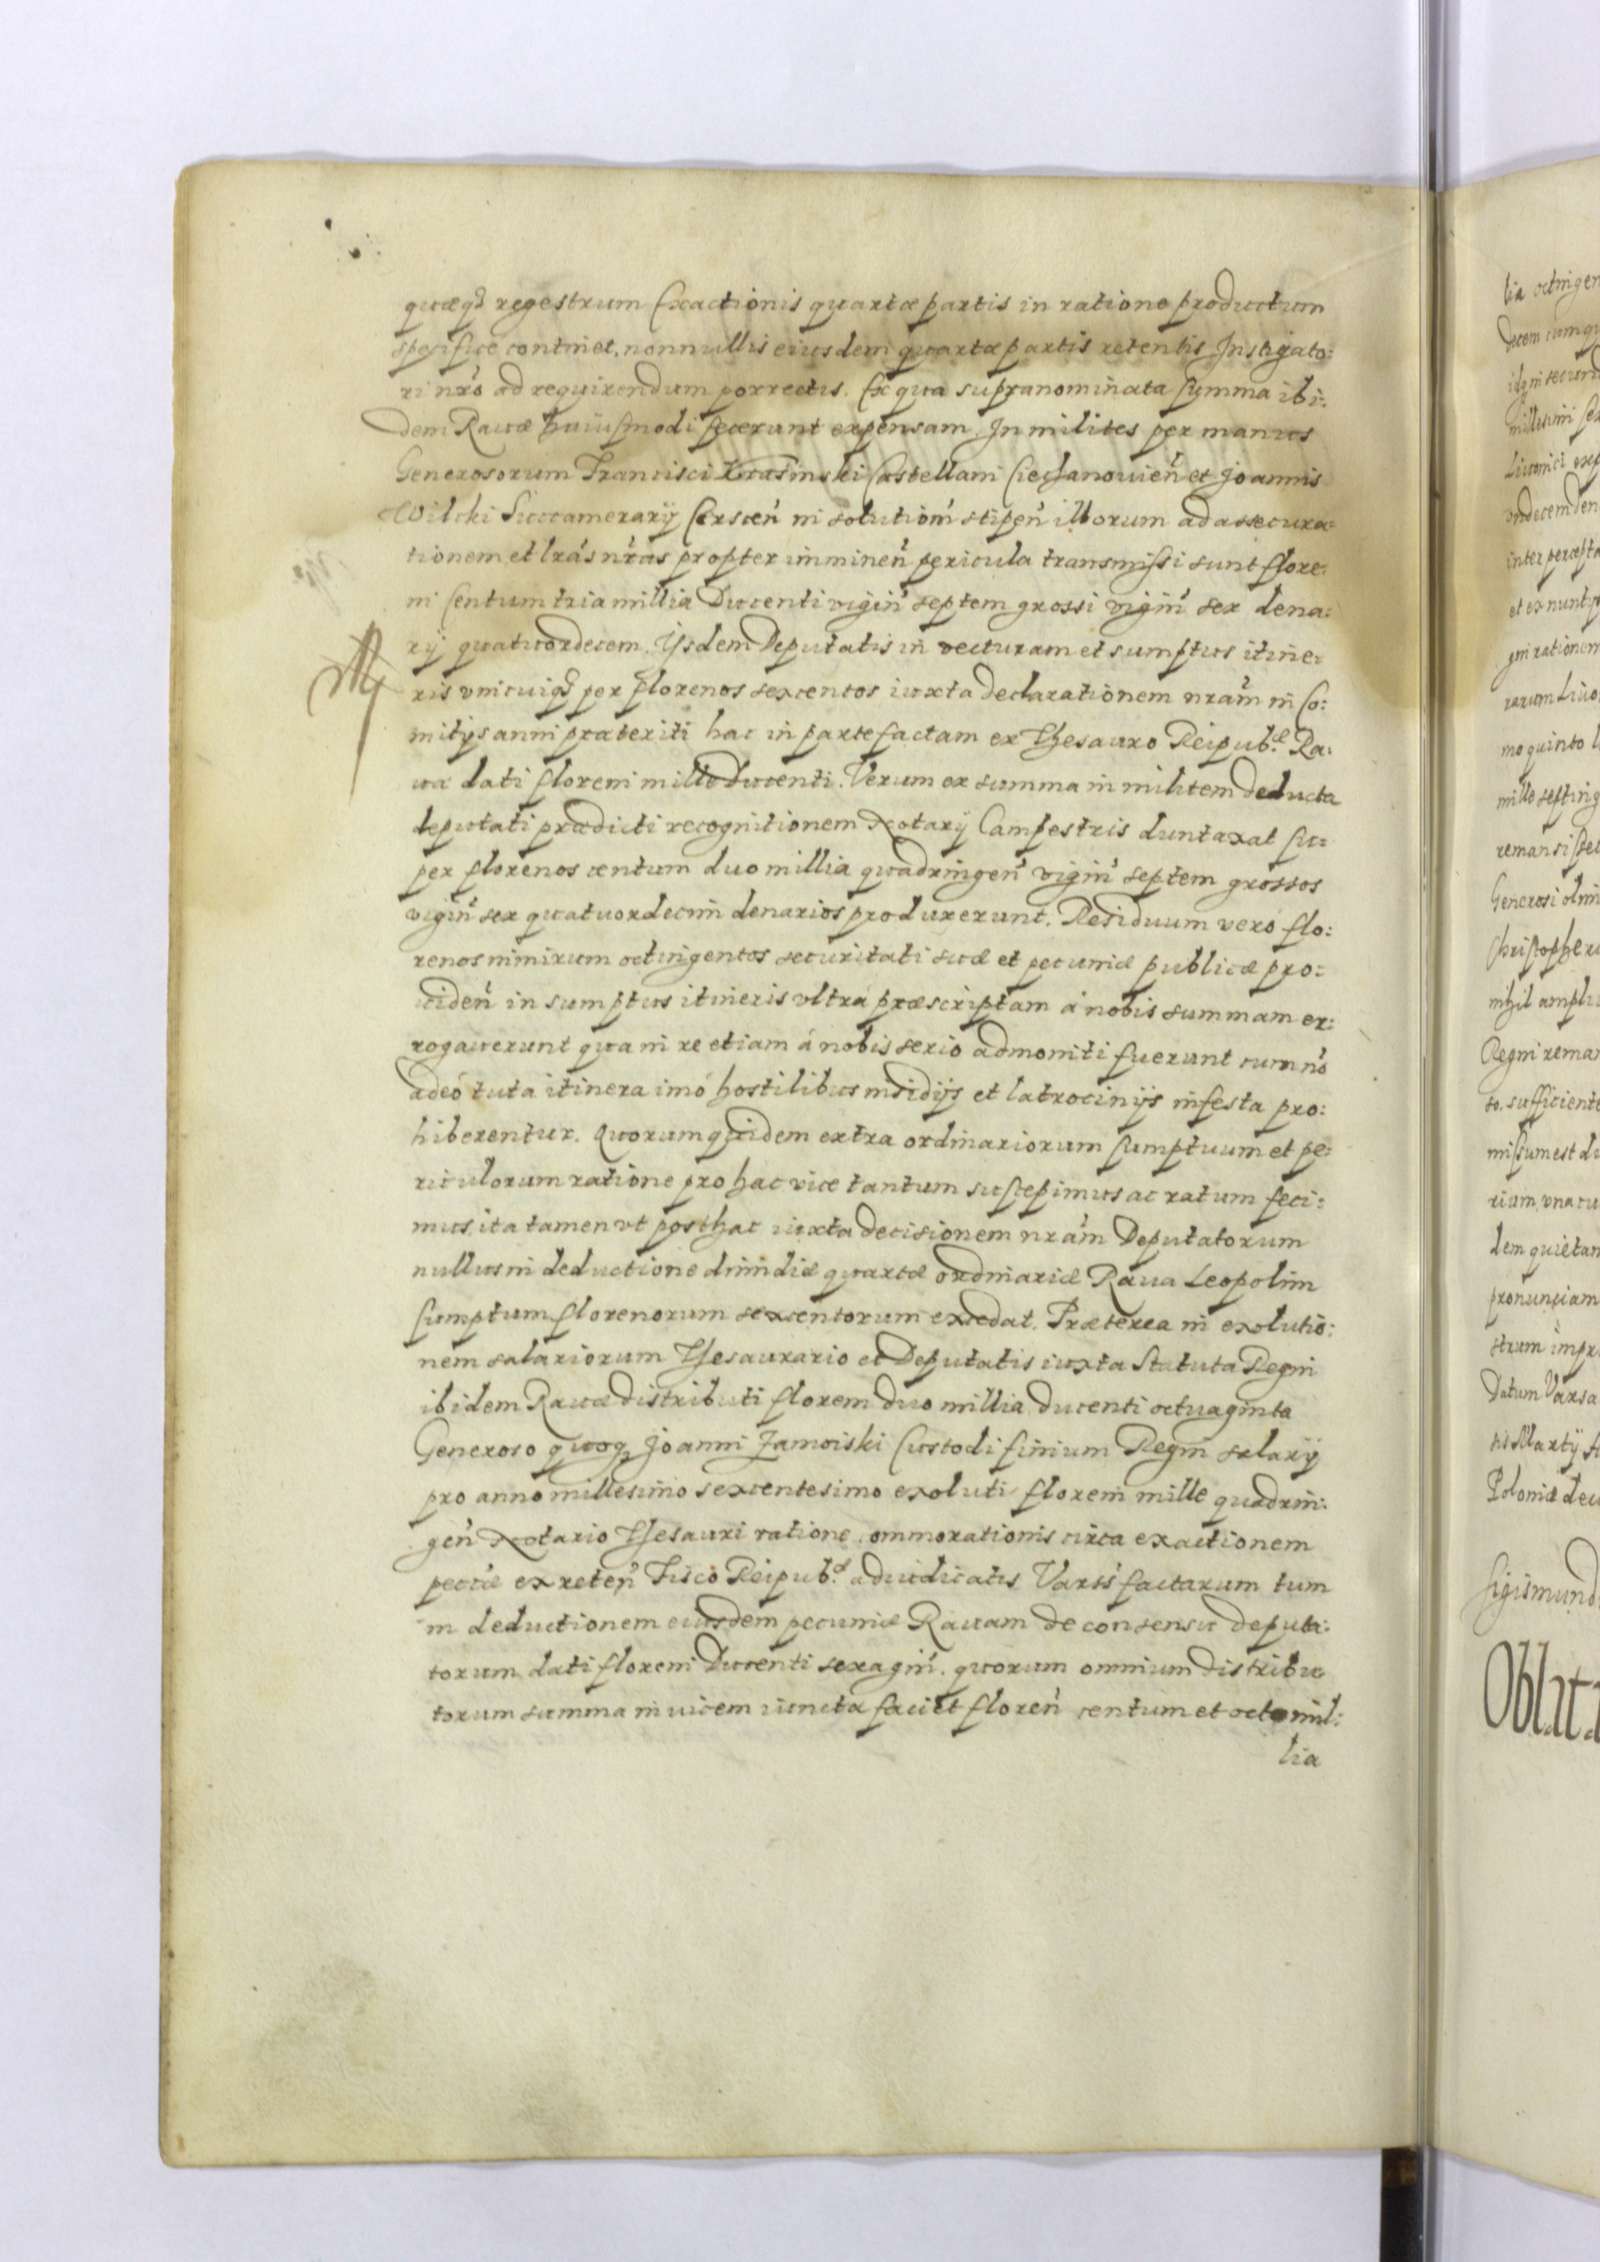 quæq3 regestrum Exactionis quartæ partis in ratione productum
specifice continet, nonnullis eiusdem quartæ partis retentis Instigato:
ri nr̃o ad requirendum porrectis. Ex qua supranominata summa ibi:
dem Rauæ huiusmodi fecerunt expensam. In milites per manus
Generosorum Francisci Krasinski Castellani Ciechanouien̄ et Joannis
Wilcki Succamerarij Cersceń in solutionḿ stipeń illorum ad assecura:
tionem et lrás nrás propter imminen̄ pericula transmissi sunt flore:
ni Centum tria millia Ducenti vigin̄ septem grossi vigin̄ sex dena:
rij quatuordecem. Ijsdem Deputatis in vecturam et sumptus itine:
ris vnicuiq3 per florenos sexcentos iuxta declarationem nrám in Co:
mitijs anni præteriti hac in parte factam ex Thesauro Reipub: Ra:
uæ dati floreni mille Ducenti. Verum ex summa in militem deducta
deputati prædicti recognitionem Notarij Campestris duntaxat su:
per florenos centum duo millia quadringen̄ vigin̄ septem grossos
vigin̄ sex quatuordecim denarios produxerunt. Residuum veró flo:
renos nimirum octingentos securitati suæ et pecuniæ publicæ pro:
uiden̄ in sumptus itineris vltrá præscriptam á nobis summam er:
rogauerunt qua in re etiam á nobis serio admoniti fuerunt cum nó
adeó tuta itinera imó hostilibus insidijs et latrocinijs infesta pro:
hiberentur. Quorum quidem extra ordinariorum sumptuum et pe:
riculorum ratione pro hac vice tantum suscepimus ac ratum feci:
mus, ita tamen vt posthac iuxta decisionem nrám Deputatorum
nullus in deductione dimidiæ quartæ ordinariæ Raua Leopolim
sumptum florenorum sexcentorum excedat. Præterea in exolutio:
nem salariorum Thesaurario et Deputatis iuxta Statuta Regni
ibidem Rauæ distributi floreni duo millia ducenti octuaginta
Generoso quoq3 Joanni Zamoiski Custodi finium Regni salarij
pro anno millesimo sexcentesimo exoluti floreni mille quadrin:
gen̄ Notario Thesauri ratione commorationis circa exactionem
pecúæ ex reten̄ Fisco Reipub: adiudicatis Varsś factarum tum
in deductionem eiusdem pecuniæ Rauam de consensu deputa:
torum dati floreni Ducenti sexagin̄. quorum omnium distribu
torum summa in vicem iuncta faciet floren̄ centum et octo mil:
lia
lia octingen
decem cumqu
millesimi sex
Liuonici exp
vndecem den
et ex nunc p
gni rationem
rarum Liuo
mo quinto
mille septing
remansisset
Generosi olim
Christopheri
nihil amplius
Regni reman
to, sufficiente
missum est
rium vna cu
dem quietan
pronunciam
strum impr
Datum Varsa
Poloniæ
Sigismund
Oblata